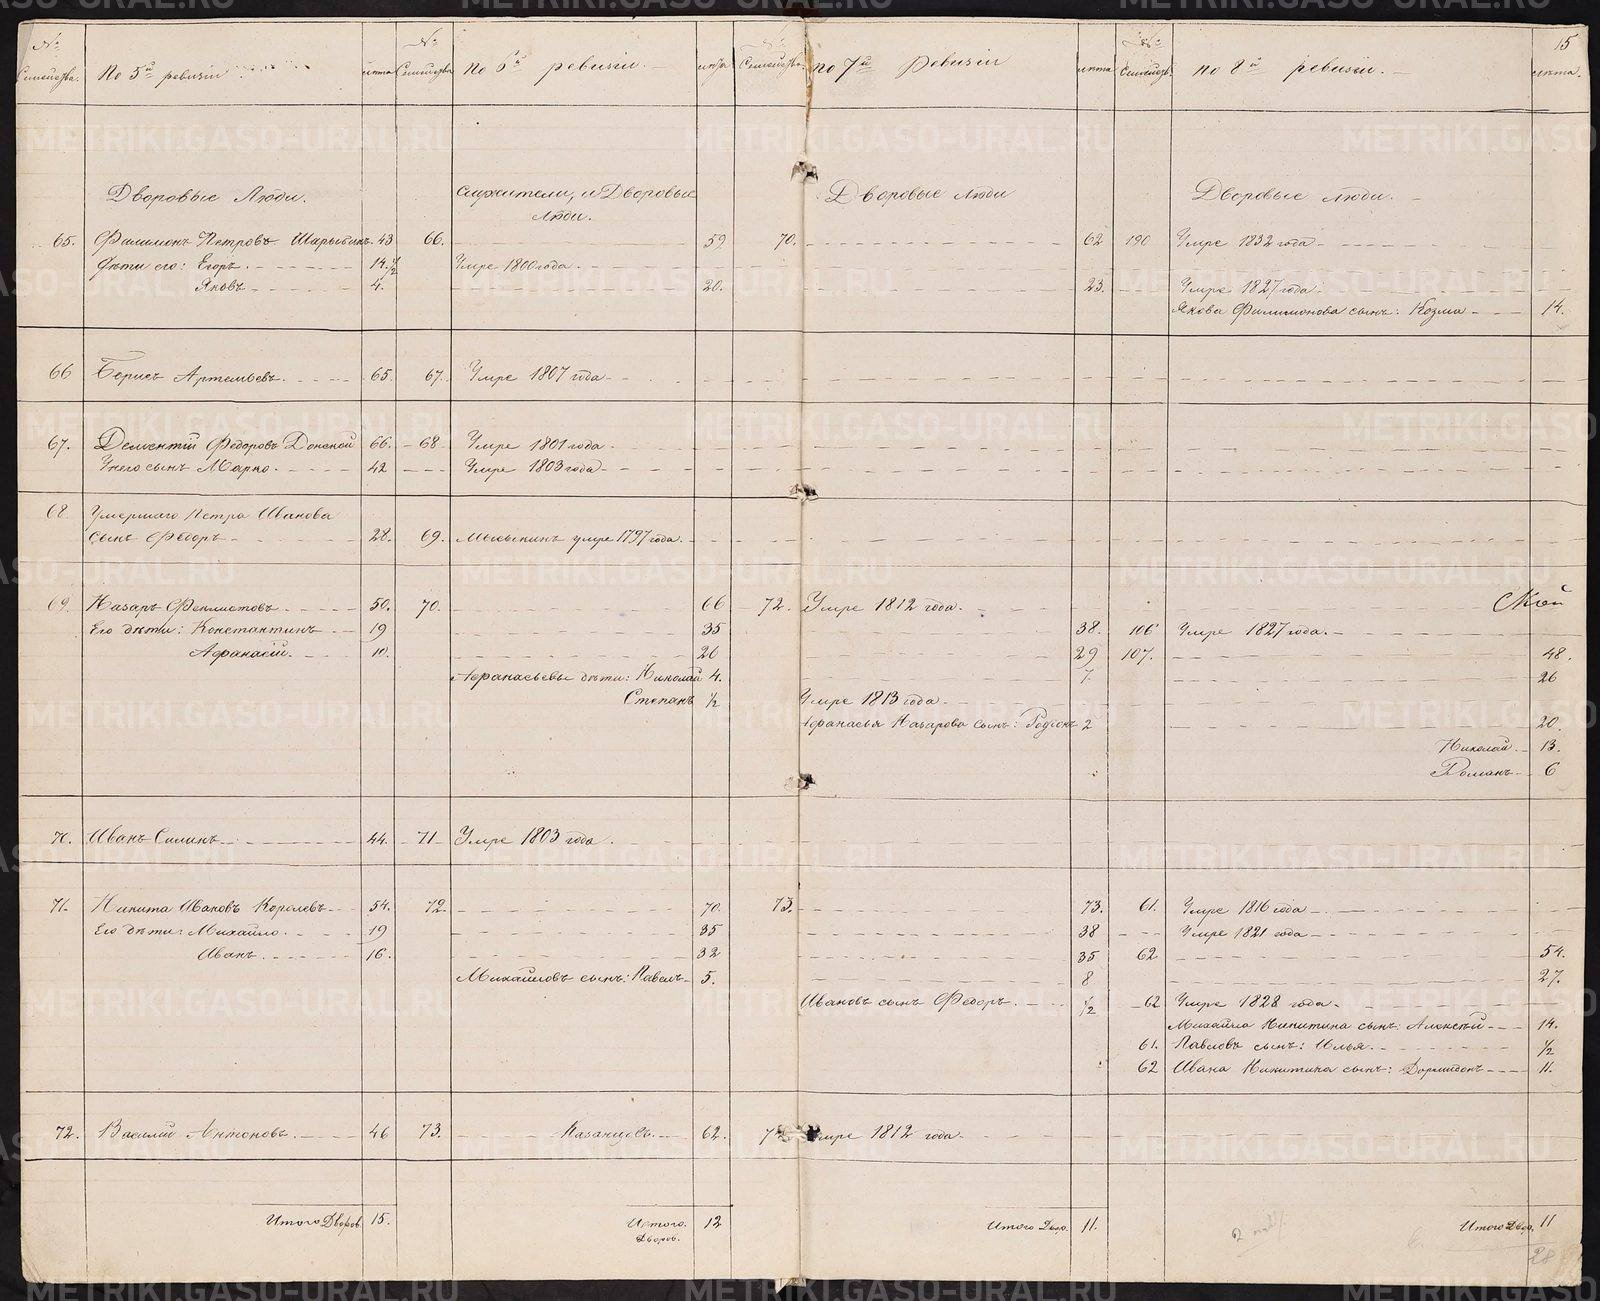 № Семейства. По 5й ревизіи лѣта № Семейства По 6й ревизіи. лѣта № Семейства По 7й Ревизіи лѣта № Семейств. по 8й ревизіи. лѣта. 15
Дворовые Люди. Служители, и Дворовые Люди. Дворовые Люди Дворовые люди.
65. Филимонъ Петровъ Шарыбинъ. 43 66. 59 70. 62 190 Умре 1832 года
Дѣти его: Егоръ. 14.½ Умре 1800 года.
Яковъ 4. 20. 23. Умре 1827 года.
Якова Филимонова сынъ: Козма 14.
66 Борисъ Артемьевъ. 65. 67. Умре 1807 года
67. Дементій Федоровъ Донской 66. 68 Умре 1801 года.
У него сынъ Марко. 42 Умре 1803 года
68. Умершаго Петра Иванова
сынъ Федоръ 28. 69. умре 1797 года.
69. Назаръ Феклистовъ 50. 70. 66 72. Умре 1812 года.
Его дѣти: Константинъ 19 35 38. 106 Умре 1827 года.
Афанасій. 10. 26 29 107. 48.
Афанасьевы дѣти: Николай 4. 7. 26
Степанъ ½ Умре 1813 года.
Афанасья Назарова сынъ: Родіонъ 2 20.
Николай. 13.
Романъ 6
70. Иванъ Силинъ 44. 71 Умре 1803 года.
71. Никита Ивановъ Королевъ 54. 72. 70. 73. 73. 61. Умре 1816 года
Его дѣти: Михайло. 19 35 38 Умре 1821 года
Иванъ. 16. 32 35 62 54.
Михайловъ сынъ: Павелъ 5. 8 27.
Ивановъ сынъ Федоръ. ½ 62 Умре 1828 года.
Михайла Никитина сынъ: Алексѣй 14.
61. Павловъ сынъ: Илья. ½
62 Ивана Никитина сынъ: Дормидонъ 11.
72. Василій Антоновъ. 46 73. Казанцовъ. 62. Умре 1812 года.
Итого Дворов 15. Итого. Дворов. 12 Итого Двор. 11. Итого Двор. 11
28
METRIKI.GASO-URAL.RU